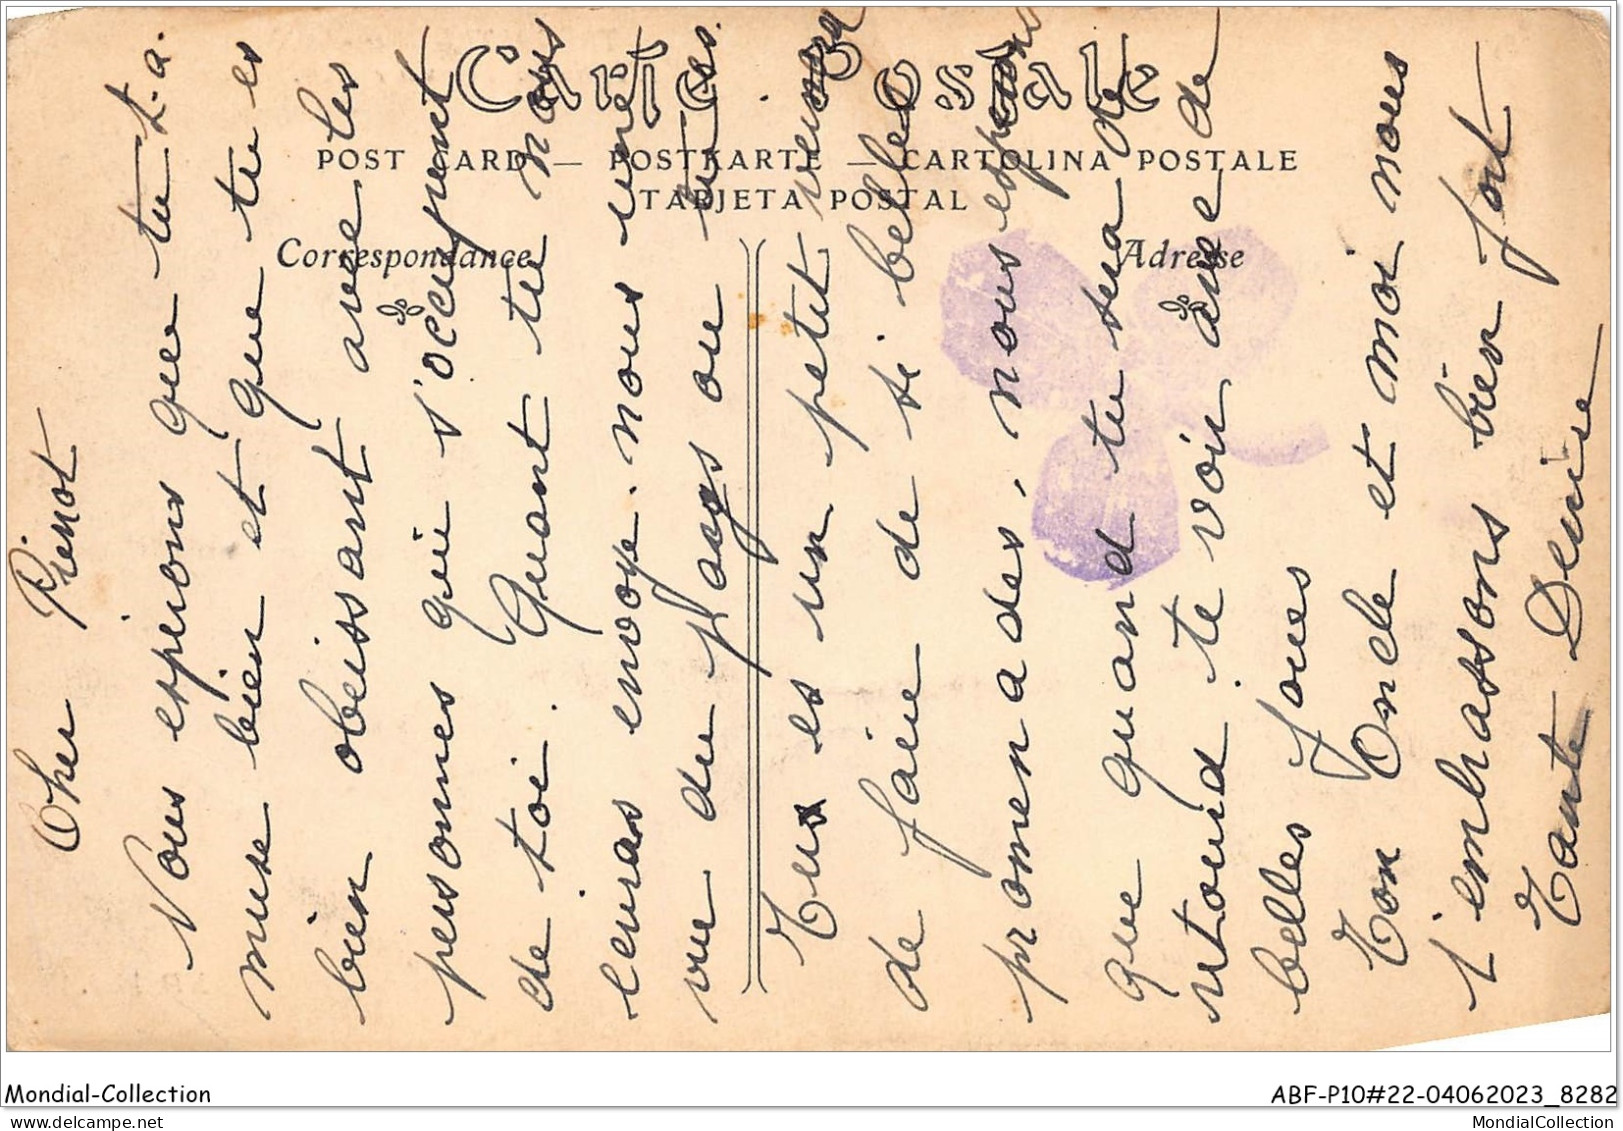 Carte Postale
POST CARD — POSTKARTE — CARTOLINA POSTALE
TARJETA POSTAL
Correspondance
Adresse
Cher Pierrot
Nous esperons que tu t-a.
muse bien et que tu es
bien obeissant avec les
personnes qui s'occupent
de toi. Quant tu nous
ecriras envoye-nous une
vue du pays ou tu es.
Tu es un petit
de faire de si belles
promenades, nous esperons
que quand tu sera de
retour te voir avec de
belles joues
Ton Oncle et moi nous
t'embrassons bien fort
Tante Denise
Mondial-Collection
ABF-P10#22-04062023_8282
MondialCollection